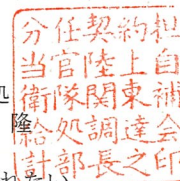 分任契約担
当官陸上自
衛隊関東補
給処調達会
計部長之印
処
隆